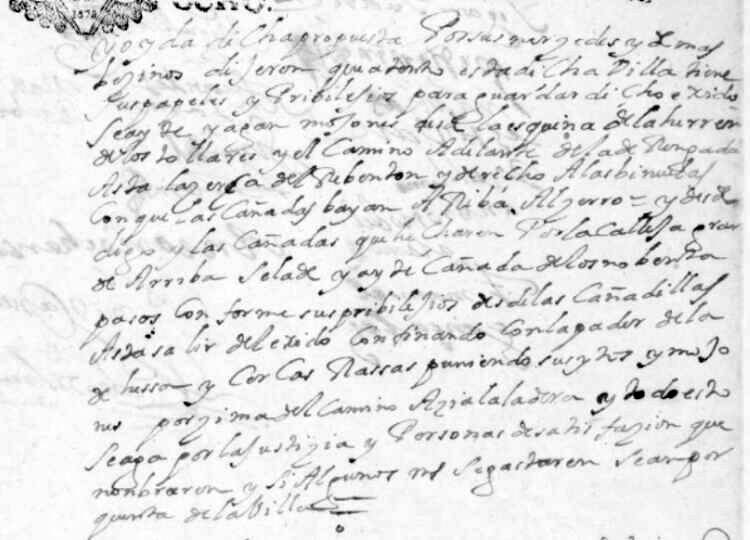 OCHO.
1678
y oyda dicha propuesta Por sus merzedes y demas
bezinos dijeron que atento esta dicha Villa tiene
sus papeles y Pribilejios para guardar dicho exido
Se ay de y agan mojones desde la esquina de la herren
de los tollares y el Camino Adelante de la de Penpada
Asta la zerca del Rubenton y derecho A las binuelas
Con que las Cañadas bayan A Riba. Al zerro = y desde
digo y las Cañadas que he charen Por la Calleja
de Arriba Se la de y ay de Cañada de los noben ta
pasos Con forme sus pribilejios desde las Cañadillas
Asta salir del exido Confinando Con la pader de la
de hussa y Cor Cas Rassas puniendo sus ytos y mojo
nes por zima del Camino Azia la ladera y todo esto
Se aga por la Justizia y Personas de satis fazion que
nonbraren y si Algunos ms Se gastaren Sean por
quenta de la Villa =